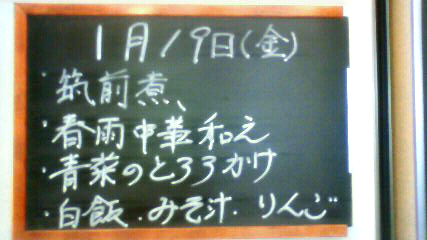 1月19日(金)
・筑前煮、
・春雨中華和え
・青菜のとろろかけ
・白飯・みそ汁・りんご